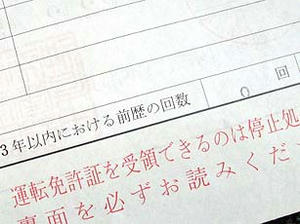 3年以内における前歴の回数 0 回
運転免許証を受領できるのは停止処
裏面を必ずお読みくだ